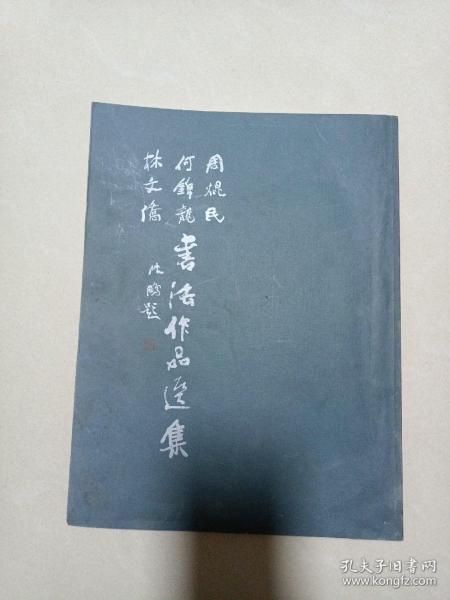 周焜民
何锦龙
林文侨
書法作品選集
沈鹏题
孔夫子旧书网
www.kongfz.com